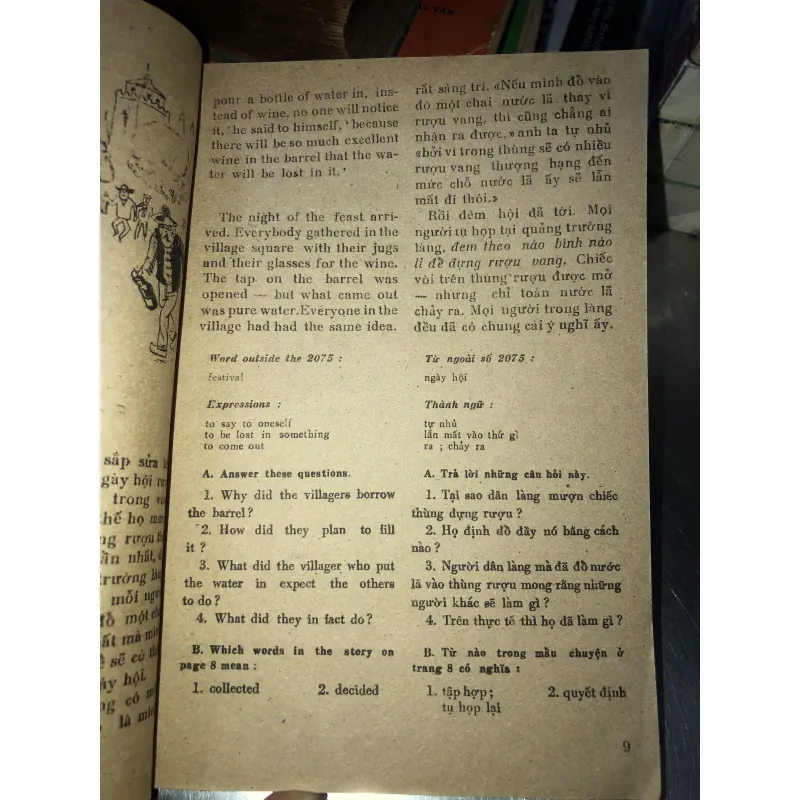 pour a bottle of water in, ins-
tead of wine, no one will notice
it,' he said to himself, 'because
there will be so much excellent
wine in the barrel that the wa-
ter will be lost in it.'
The night of the feast arri-
ved. Everybody gathered in the
village square with their jugs
and their glasses for the wine.
The tap on the barrel was
opened — but what came out
was pure water. Everyone in the
village had had the same idea.
Word outside the 2075 :
festival
Expressions :
to say to oneself
to be lost in something
to come out
A. Answer these questions.
1. Why did the villagers borrow
the barrel ?
2. How did they plan to fill
it ?
3. What did the villager who put
the water in expect the others
to do ?
4. What did they in fact do ?
B. Which words in the story on
page 8 mean :
1. collected 2. decided
rất sáng trí. «Nếu mình đổ vào
đó một chai nước lã thay vì
rượu vang, thì cũng chẳng ai
nhận ra được,» anh ta tự nhủ
«bởi vì trong thùng sẽ có nhiều
rượu vang thượng hạng đến
mức chỗ nước lã ấy sẽ lẫn
mất đi thôi.»
Rồi đêm hội đã tới. Mọi
người tụ họp tại quảng trường
làng, đem theo nào bình nào
li để đựng rượu vang. Chiếc
vòi trên thùng rượu được mở
— nhưng chỉ toàn nước lã
chảy ra. Mọi người trong làng
đều đã có chung cái ý nghĩ ấy.
Từ ngoài số 2075 :
ngày hội
Thành ngữ :
tự nhủ
lẫn mất vào thứ gì
ra ; chảy ra
A. Trả lời những câu hỏi này.
1. Tại sao dân làng mượn chiếc
thùng đựng rượu ?
2. Họ định đổ đầy nó bằng cách
nào ?
3. Người dân làng mà đã đổ nước
lã vào thùng rượu mong rằng những
người khác sẽ làm gì ?
4. Trên thực tế thì họ đã làm gì ?
B. Từ nào trong mẩu chuyện ở
trang 8 có nghĩa :
1. tập hợp ; 2. quyết định
tụ họp lại
9
sắp sửa
gày hội
trong
thế họ
ng rượu
ần nhất,
trường
mỗi
đổ một
ất mà
sẽ có
ày hội.
ng có
là